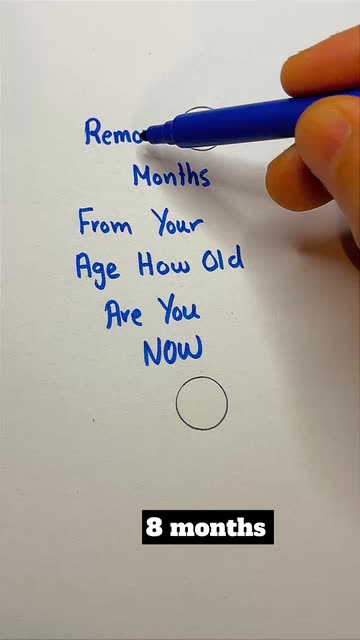 Remo
Months
From Your
Age How Old
Are You
NOW
8 months